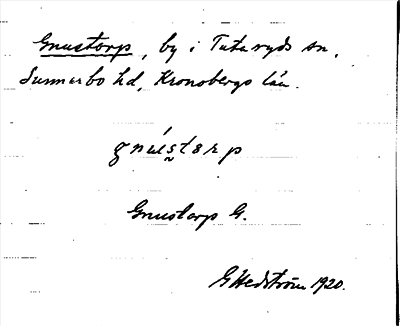 Gnustorp, by i Tutaryds sn,
Sunnerbo hd, Kronobergs län.
gnústorp
Gnustorp G.
G Hedström 1920.